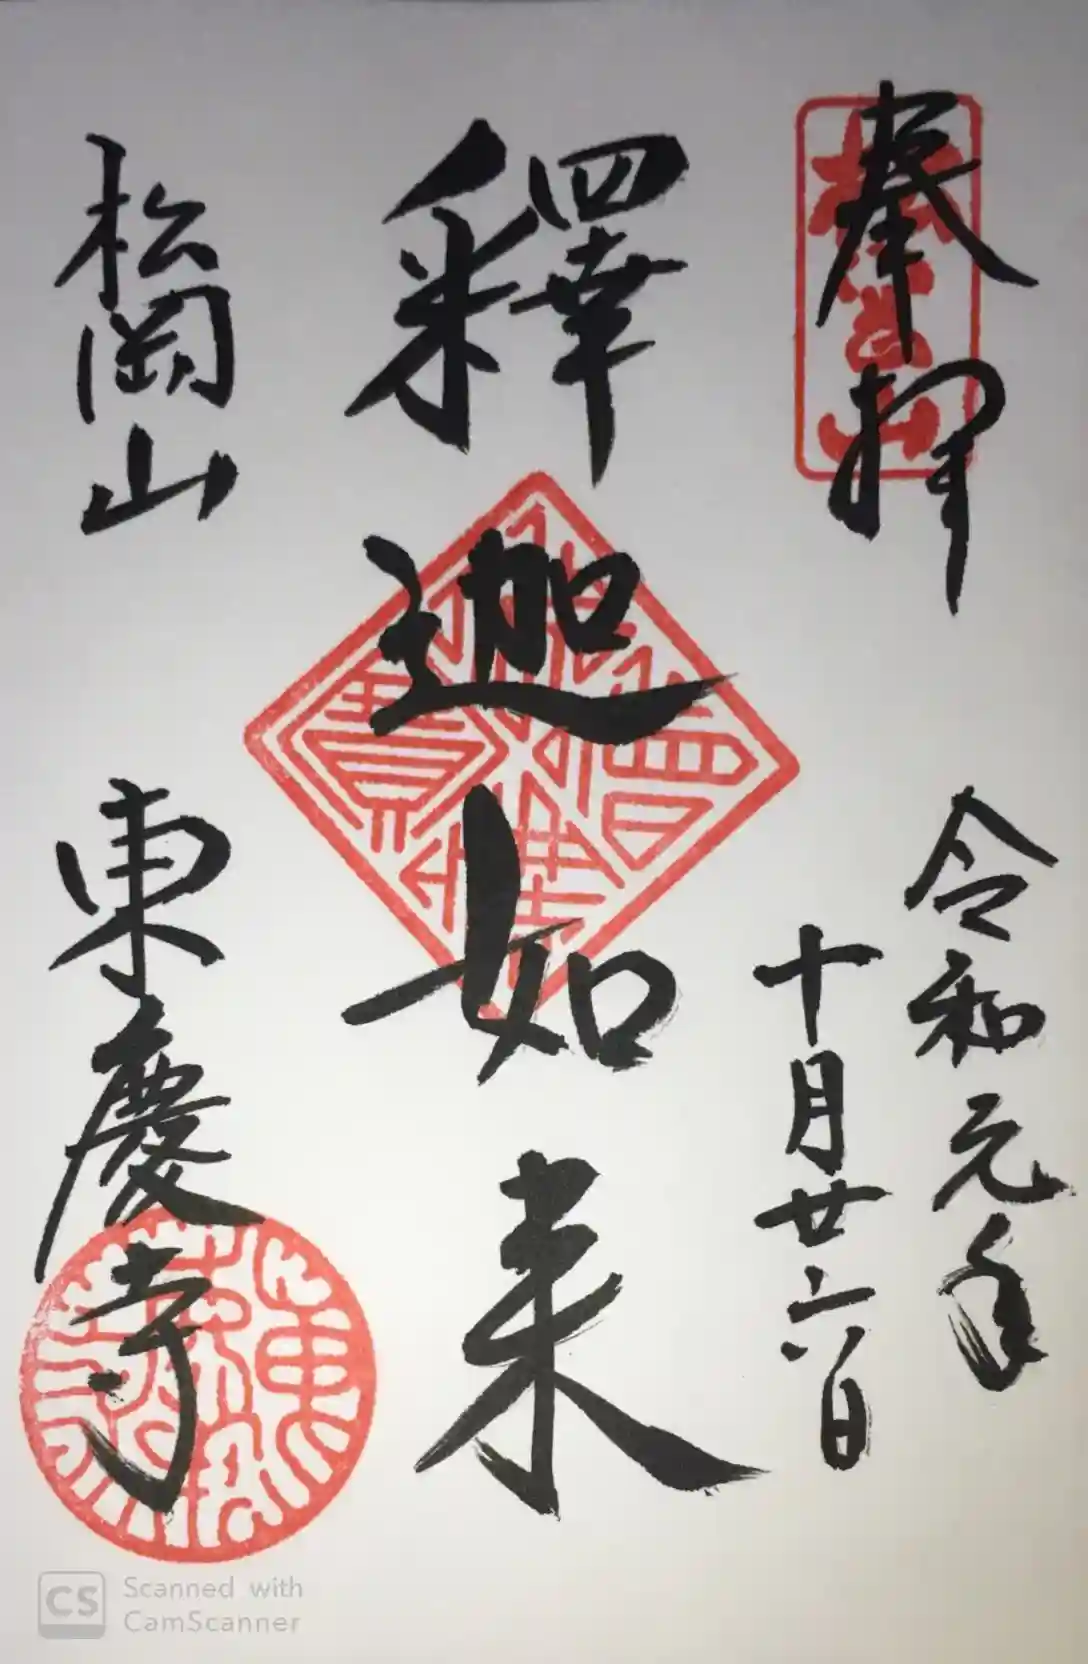 奉拜
令和元年
十月廿六日
釋迦如来
松岡山
東慶寺
CS
Scanned with
CamScanner